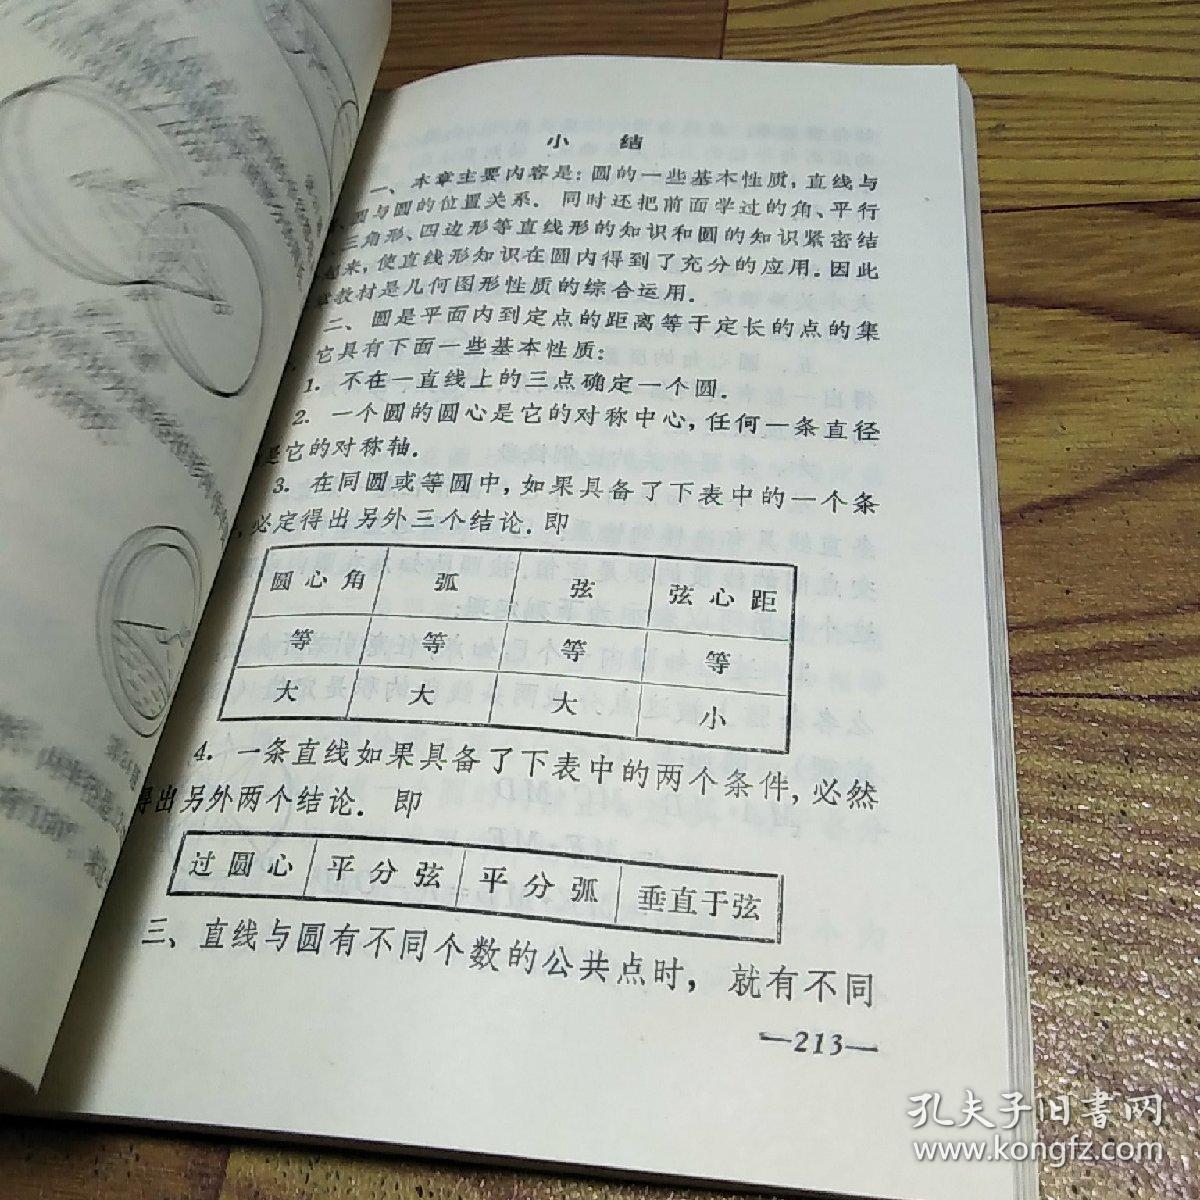 小 结
一、本章主要内容是：圆的一些基本性质，直线与
圆与圆的位置关系．同时还把前面学过的角、平行
三角形、四边形等直线形的知识和圆的知识紧密结
起来，使直线形知识在圆内得到了充分的应用．因此
教材是几何图形性质的综合运用．
二、圆是平面内到定点的距离等于定长的点的集
它具有下面一些基本性质：
1．不在一直线上的三点确定一个圆．
2．一个圆的圆心是它的对称中心，任何一条直径
是它的对称轴．
3．在同圆或等圆中，如果具备了下表中的一个条
，必定得出另外三个结论．即
圆心角 弧 弦 弦心距
等 等 等 等
大 大 大 小
4．一条直线如果具备了下表中的两个条件，必然
得出另外两个结论．即
过圆心 平分弦 平分弧 垂直于弦
三、直线与圆有不同个数的公共点时，就有不同
—213—
孔夫子旧书网
www.kongfz.com